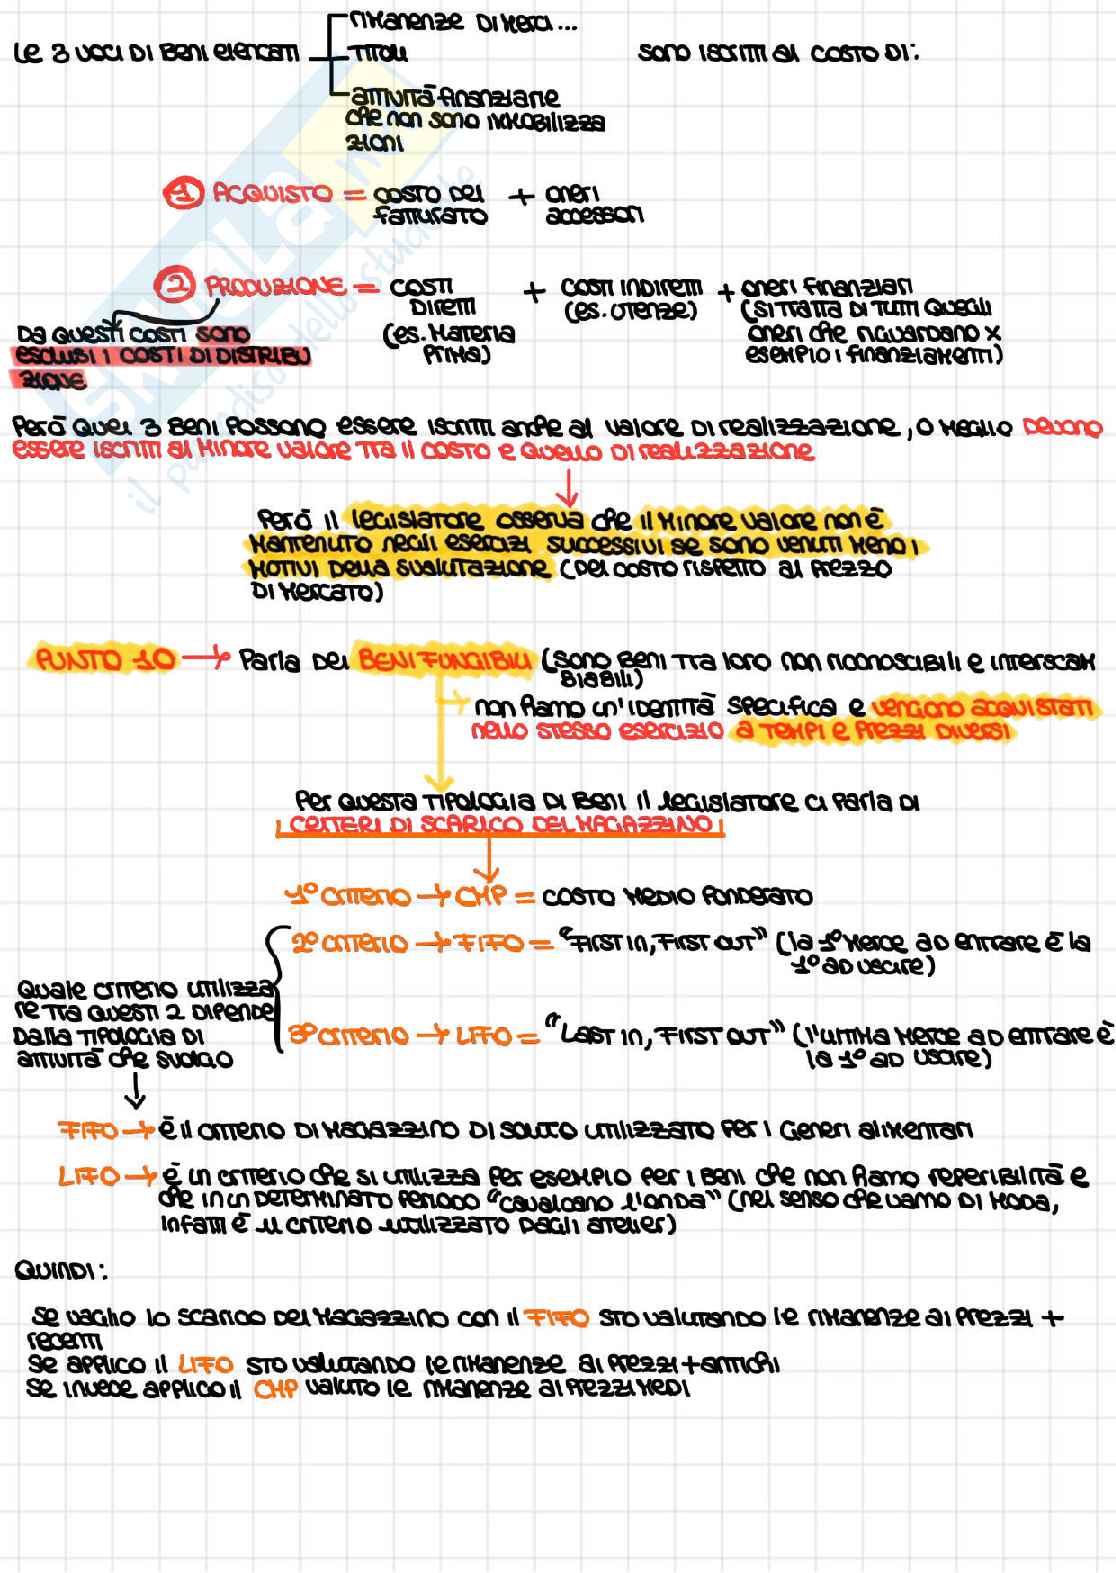 rimanenze di merci...
le 3 voci di beni elencati titoli sono iscritti al costo di:
attività finanziarie
che non sono immobilizza
zioni
1 ACQUISTO = costo del + oneri
fatturato accessori
2 PRODUZIONE = costi + costi indiretti + oneri finanziari
diretti (es. utenze) (si tratta di tutti quegli
Da questi costi sono (es. materia oneri che riguardano x
esclusi i costi di distribu prima) esempio i finanziamenti)
zione
Però quei 3 beni possono essere iscritti anche al valore di realizzazione, o meglio devono
essere iscritti al minore valore tra il costo e quello di realizzazione
Però il legislatore osserva che il minore valore non è
mantenuto negli esercizi successivi se sono venuti meno i
motivi della svalutazione (del costo rispetto al prezzo
di mercato)
PUNTO 10 → Parla dei BENI FUNGIBILI (sono beni tra loro non riconoscibili e interscam
biabili)
non hanno un'identità specifica e vengono acquistati
nello stesso esercizio a tempi e prezzi diversi
Per questa tipologia di beni il legislatore ci parla di
CRITERI DI SCARICO DEL MAGAZZINO
1° criterio → CMP = costo medio ponderato
2° criterio → FIFO = "First in, First out" (la 1° merce ad entrare è la
1° ad uscire)
Quale criterio utilizza
re tra questi 2 dipende
dalla tipologia di
attività che svolgo
3° criterio → LIFO = "Last in, First out" (l'ultima merce ad entrare è
la 1° ad uscire)
FIFO → è il criterio di magazzino di solito utilizzato per i generi alimentari
LIFO → è un criterio che si utilizza per esempio per i beni che non hanno reperibilità e
che in un determinato periodo "cavalcano l'onda" (nel senso che vanno di moda,
infatti è il criterio utilizzato dagli atelier)
Quindi:
Se vaglio lo scarico del magazzino con il FIFO sto valutando le rimanenze ai prezzi +
recenti
Se applico il LIFO sto valutando le rimanenze ai prezzi + antichi
Se invece applico il CMP valuto le rimanenze ai prezzi medi
SKUOLA.net
il paradiso dello studente